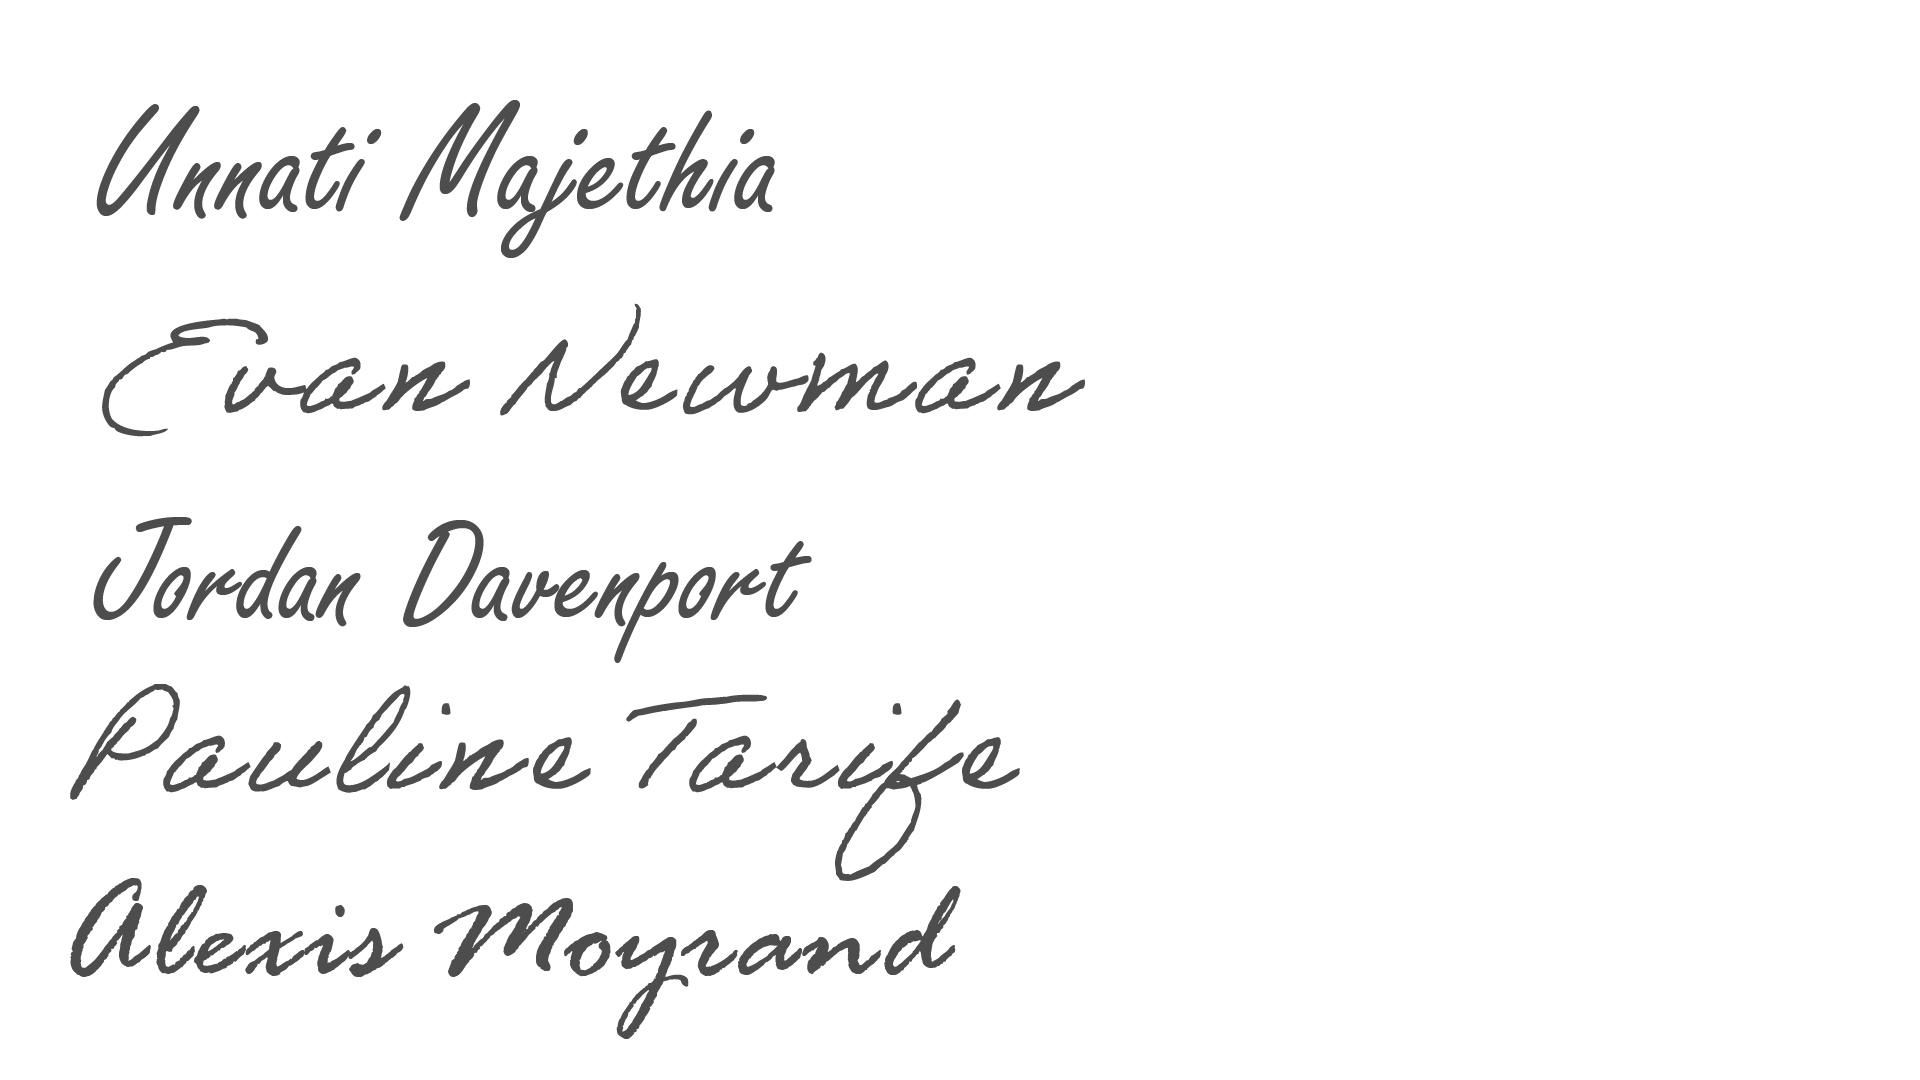 Unnati Majethia
Evan Newman
Jordan Davenport
Pauline Tarife
Alexis Moyrand